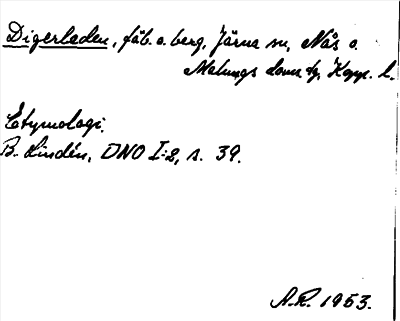 Digerleden, fäb. o. berg, Järna sn, Nås o.
Malungs doms dg, Kopp. l.
Etymologi.
B. Lindén, DNO I:2, s. 39.
A.R. 1953.